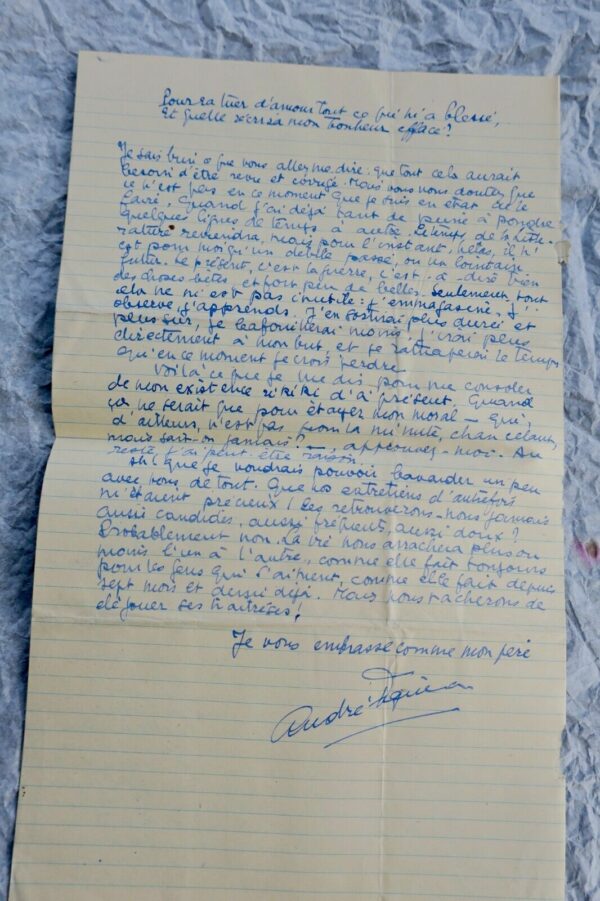 Pour sa tuer d'amour tout ce qui m'a blessé,
Et quelle s'écrira mon bonheur effacé?
Je sais bien ce que vous allez me dire: que tout cela aurait
besoin d'être revu et corrigé. Mais vous vous doutez que
ce n'est pas en ce moment que je suis en état de le
faire, quand j'ai déjà tant de peine à pondre
quelques lignes de temps à autre. Le temps de la litté-
rature reviendra, mais pour l'instant, hélas, il n'
est pour moi qu'un double passé, ou un lointain
futur. Le présent, c'est la guerre, c'est-à-dire bien
des choses bêtes et fort peu de belles. Seulement, tout
cela ne m'est pas inutile: j'emmagasine, j'
observe, j'apprends. J'en sortirai plus durci et
plus sûr, je cafouillerai moins, j'irai plus
directement à mon but, et je rattraperai le temps
qu'en ce moment je crois perdre.
Voilà ce que je me dis pour me consoler
de mon existence rikiki d'à présent. Quand
ça ne serait que pour étayer mon moral — qui,
d'ailleurs, n'est pas pour la minute, chancelant,
mais sait-on jamais? —, approuvez-moi. Au
reste j'ai peut-être raison.
Ah! que je voudrais pouvoir bavarder un peu
avec vous de tout. Que nos entretiens d'autrefois
m'étaient précieux! Les retrouverons-nous jamais
aussi candides, aussi fréquents, aussi doux?
Probablement non. La vie nous arrachera plus ou
moins l'un à l'autre, comme elle fait toujours
pour les gens qui s'aiment, comme elle fait depuis
sept mois et demi déjà. Mais nous tâcherons de
déjouer ses traîtrises!
Je vous embrasse comme mon père
André